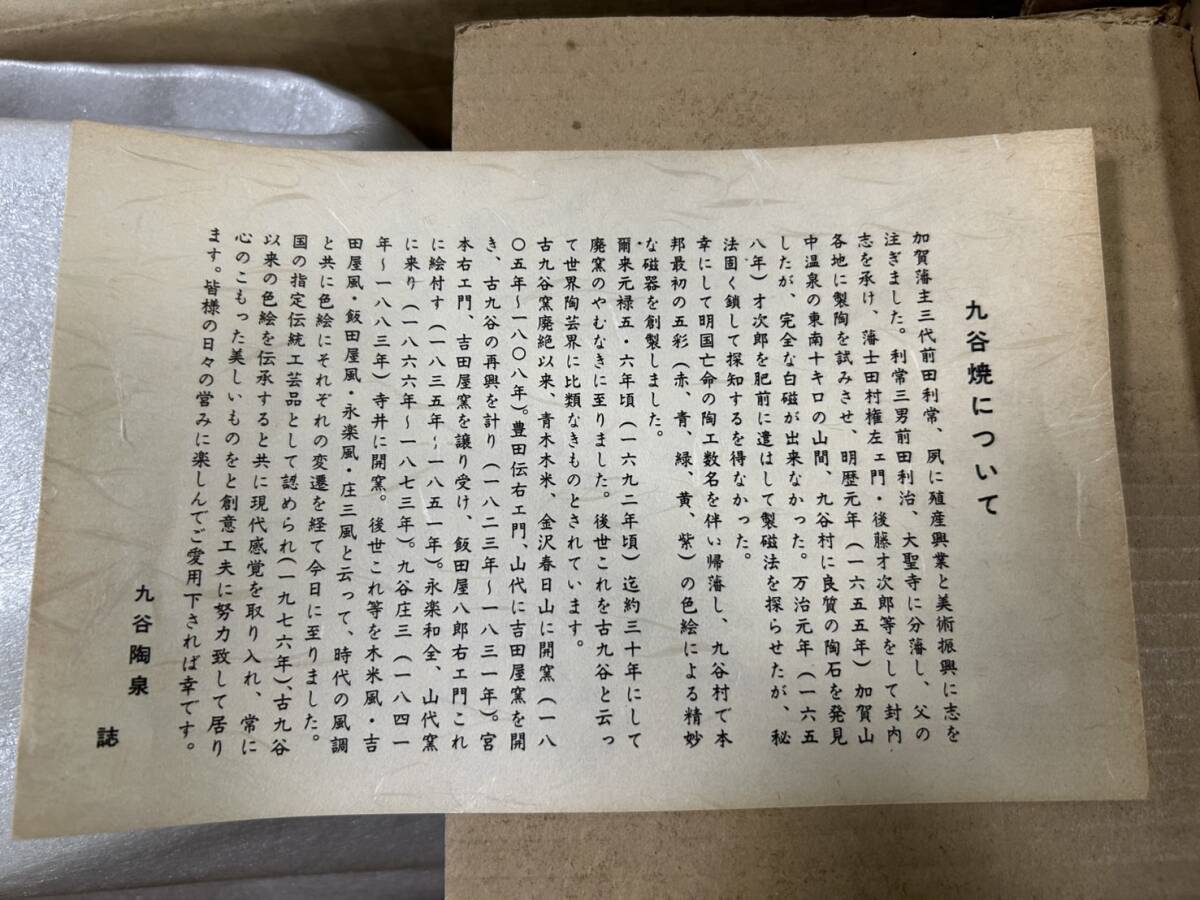 九谷焼について
加賀藩主三代前田利常、夙に殖産興業と美術振興に志を
注ぎました。利常三男前田利治、大聖寺に分藩し、父の
志を承け、藩士田村権左ェ門・後藤才次郎等をして封内
各地に製陶を試みさせ、明歴元年（一六五五年）加賀山
中温泉の東南十キロの山間、九谷村に良質の陶石を発見
したが、完全な白磁が出来なかった。万治元年（一六五
八年）才次郎を肥前に遣はして製磁法を探らせたが、秘
法固く鎖して探知するを得なかった。
幸にして明国亡命の陶工数名を伴い帰藩し、九谷村で本
邦最初の五彩（赤、青、緑、黄、紫）の色絵による精妙
な磁器を創製しました。
爾来元禄五・六年頃（一六九二年頃）迄約三十年にして
廃窯のやむなきに至りました。後世これを古九谷と云っ
て世界陶芸界に比類なきものとされています。
古九谷窯廃絶以来、青木木米、金沢春日山に開窯（一八
〇五年〜一八〇八年）。豊田伝右エ門、山代に吉田屋窯を開
き、古九谷の再興を計り（一八二三年〜一八三一年）。宮
本右エ門、吉田屋窯を譲り受け、飯田屋八郎右エ門これ
に絵付す（一八三五年〜一八五一年）。永楽和全、山代窯
に来り（一八六六年〜一八七三年）。九谷庄三（一八四一
年〜一八八三年）寺井に開窯。後世これ等を木米風・吉
田屋風・飯田屋風・永楽風・庄三風と云って、時代の風調
と共に色絵にそれぞれの変遷を経て今日に至りました。
国の指定伝統工芸品として認められ（一九七六年）、古九谷
以来の色絵を伝承すると共に現代感覚を取り入れ、常に
心のこもった美しいものをと創意工夫に努力致して居り
ます。皆様の日々の営みに楽しんでご愛用下されば幸です。
九谷陶泉　誌